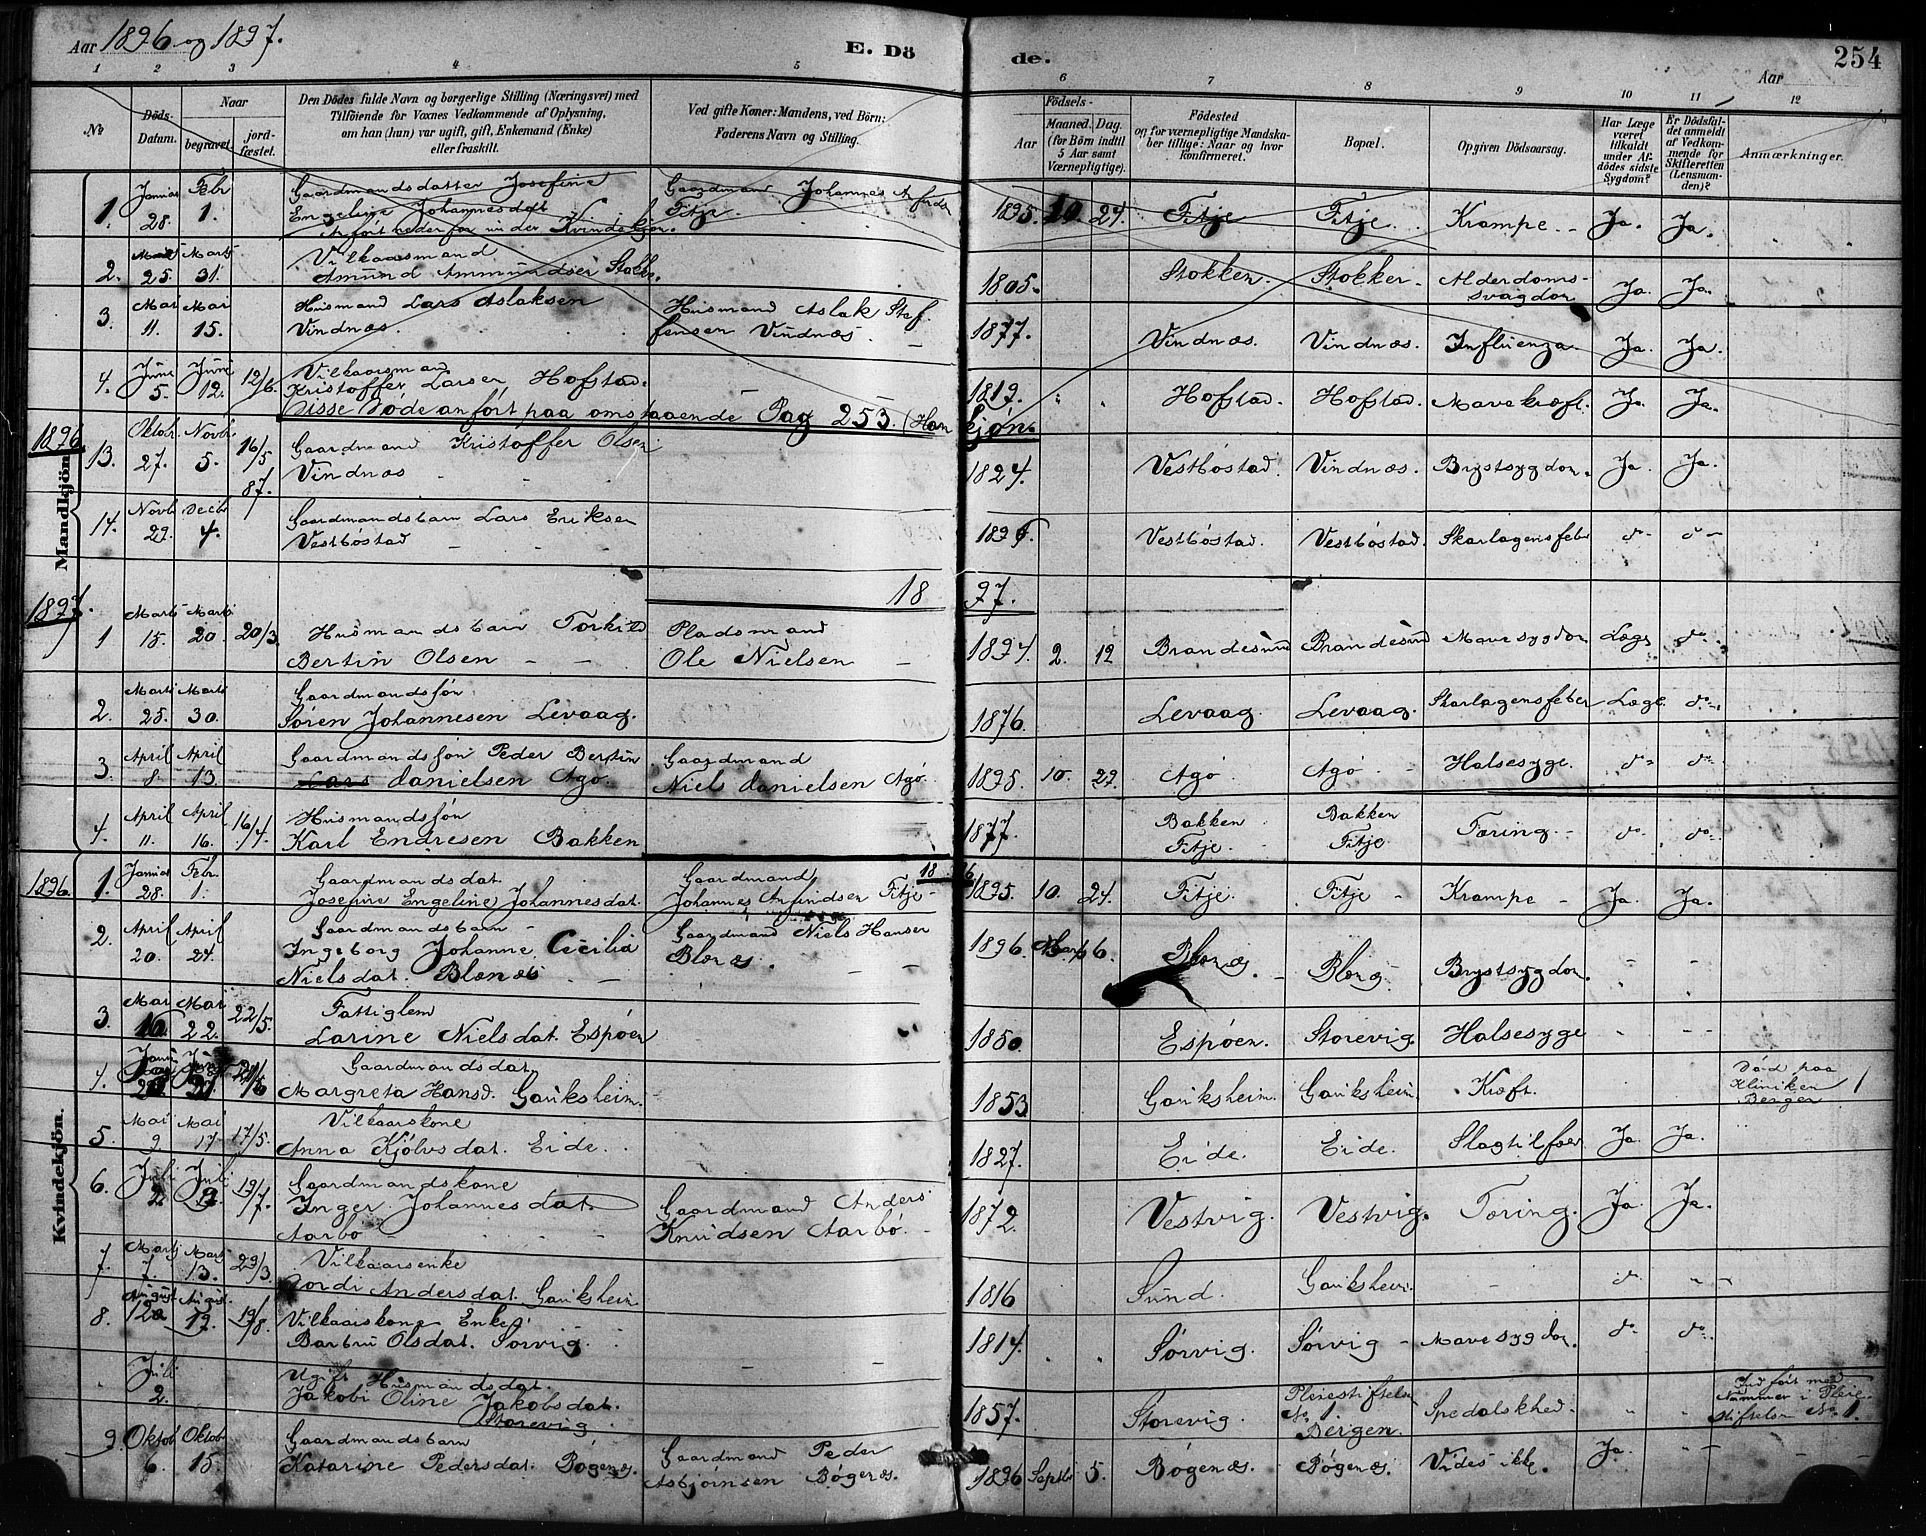 Aar 1896 og 1897.
E. Dö de.
Aar
254
1 2 3 4 5 6 7 8 9 10 11 12
No
Döds-Datum.
Naar
begravet.
jord-fæstet.
Den Dödes fulde Navn og borgerlige Stilling (Næringsvei) med
Tilföiende for Voxnes Vedkommende af Oplysning,
om han (hun) var ugift, gift, Enkemand (Enke)
eller fraskilt.
Ved gifte Koner: Mandens, ved Börn:
Faderens Navn og Stilling.
Födsels-
Aar
Maaned. Dag.
(for Börn indtil
5 Aar samt
Værnepligtige).
Födested
og for værnepligtige Mandska-
ber tillige: Naar og hvor
konfirmeret.
Bopæl.
Opgiven Dödsaarsag.
Har Læge
været
tilkaldt
under Af-
dödes sidste
Sygdom?
Er Dödsfal-
det anmeldt
af Vedkom-
mende for
Skifteretten
(Lensman-
den)?
Anmærkninger.
1. Januar 28. Febr 1. Gaardmandsdatter Josefine
Engeline Johannesdat
Anfört nedenfor under Kvindekjön.
Gaardmand Johannes Arfindsen
Fitje.
1895. 10. 24. Fitje Fitje. Krampe - Ja. Ja.
2. 25. Marts 31. Vilkaarsmand
Amund Ammundsen Stokke.
1805. Stokken. Stokken. Alderdoms-
svagdom Ja. Ja.
3. Mai 11. Mai 15. Husmand Lars Aslaksen
Vindnæs.
Husmand Aslak Stef-
fensen Vindnæs.
1877. Vindnæs. Vindnæs. Influenza. Ja. Ja.
4. Juni 5. Juni 12. 12/6. Vilkaarsmand
Kristoffer Larsen Hofstad.
1819. Hofstad. Hofstad. Mavekræft. Ja. Ja.
Disse Döde anfört paa omstaaende Pag 253. (Han kjön.
1896
Mandkjön.
13. Oktobr 27. Novbr 5. 16/5 87. Gaardmand Kristoffer Olsen
Vindnæs
1824. Vestböstad. Vindnæs. Brystsygdom. Ja. Ja.
14. Novbr 29. Decbr 4. Gaardmandsbarn Lars Eriksen
Vestböstad
1896. Vestböstad. Vestböstad. Skarlagensfeber do do
1897.
1897.
1 Marts 15. Marts 20. 20/3 Husmandsbarn Torkild
Bertin Olsen
Pladsmand
Ole Nielsen
1894. 2. 12 Brandesund Brandesund Mavesygdom Læge do
2. Marts 25. Marts 30. Gaardmandssøn
Sören Johannesen Levaag.
1876. Levaag. Levaag. Skarlagensfeber Læge do
3. April 8. April 13. Gaardmandsøn Peder Bertin
Lars Danielsen Agö
Gaardmand
Niels Danielsen Agö
1895. 10. 29. Agö Agö Halsesyge. do do
4. April 11. April 16. 16/4. Husmandsøn
Karl Endresen Bakken
1877. Bakken
Fitje. Bakken
Fitje. Tæring. do do
1896
1896.
Kvindekjön.
1. Januar 28. Febr. 1. Gaardmandsdat
Josefine Engeline Johannesdat.
Gaardmand
Johannes Arfindsen Fitje
1895. 10. 24. Fitje. Fitje Krampe Ja. Ja.
2. April 20. April 24. Gaardmandsbarn
Ingeborg Johanne Cecilia
Nielsdat Blænæs
Gaardmand Niels Hansen
Blænæs.
1896. Marts 6. Brystsygdom.
3. Mai 10. Mai 22. 22/5. Fattiglem
Larine Nielsdat. Espöen
1850. Espöen. Storevig. Halsesyge
4. Gaardmandsdat
Margreta Hansd. Gauksheim.
1853 Gauksheim. Gauksheim. Kræft. Död paa
Kliniken
Bergen
5. Mai 9. Mai 17 17/5. Vilkaarskone
Anna Kjölvsdat. Eide.
1827. Eide. Eide. Slagtilfæl Ja. Ja.
6. Juli 2. Juli 9. 19/7. Gaardmandskone
Inger Johannesdat
Aarbö
Gaardmand Anders
Knudsen Aarbö.
1872. Vestvig. Vestvig. Tæring. Ja. Ja.
7. Marts 7. Marts 13. 29/3. Vilkaarsenke
Andersdat Gauksheim
1816 Sund. Gauksheim. - do
8. August 12 August 19. 19/8. Vilkaarskone Enke
Barbru Olsdat. Sörvig.
1814. Sörvig. Sörvig Mavesygdom. do do
Juli 2. Ugift Husmandsdat.
Jakobi Oline Jakobsdat.
Storevig
1857. Storevig. Pleiestiftelse
No 1
Bergen. Spedalskhed. Ind fört med
Nummer i Pleie-
stiftelsen No 1.
9. Oktob 6. Oktob 15. Gaardmandsbarn
Katarine Pedersdat. Bögenæs.
Gaardmand Peder
Asbjörnsen Bögenæs.
1896 Septbr 5. Bögenæs. Bögenæs. Vides ikke. Ja.